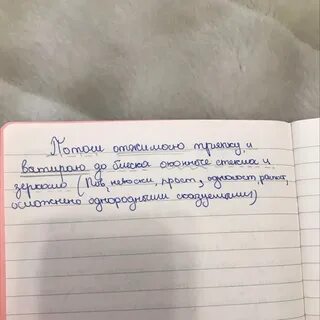 Потом отжимаю тряпку и
вытираю до блеска оконные стекла и
зеркало (Пов, невоскл, прост, односост, распр,
осложнено однородными сказуемыми)